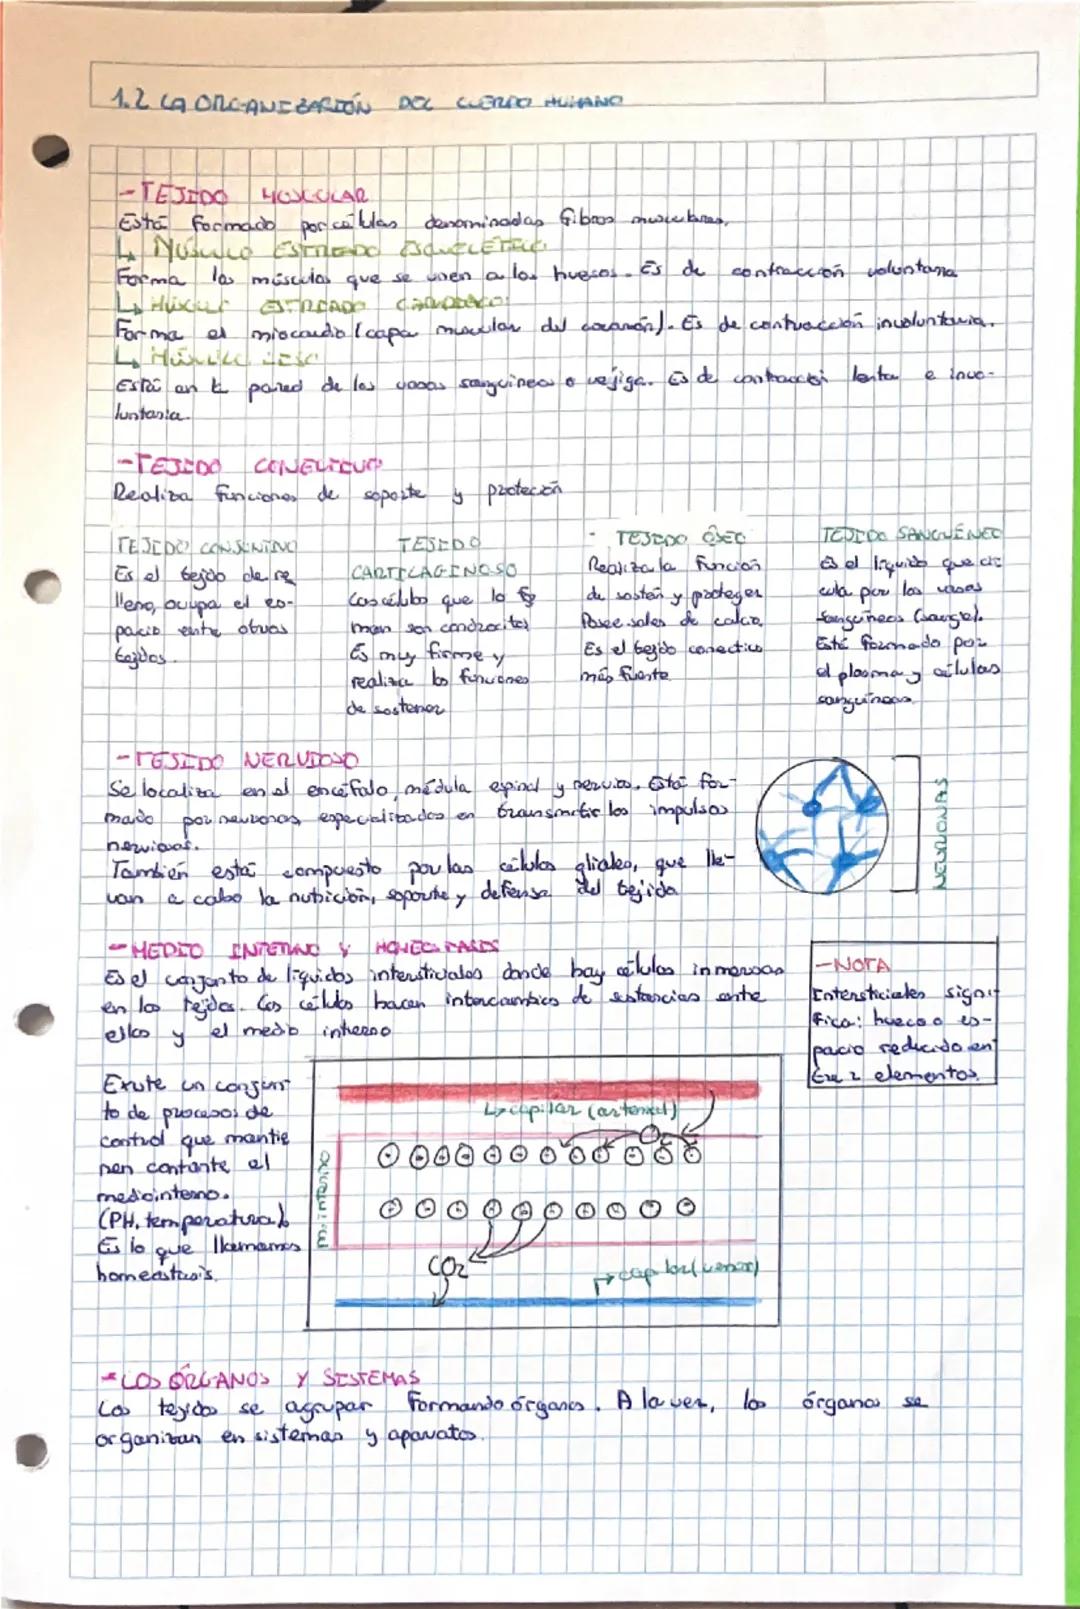 1.2 LA ORGANIZACIÓN DEL CUERPO HUMANO
-TEJIDO MUSCULAR
Está formado por células denominadas fibras musculares.
↳ MÚSCULO ESTRIADO ESQUELÉTICO:
Forma los músculos que se unen a los huesos. Es de contracción voluntaria
↳ MÚSCULO ESTRIADO CARDÍACO:
Forma el miocardio (capa muscular del corazón). Es de contracción involuntaria.
↳ MÚSCULO LISO:
Está en la pared de los vasos sanguíneos o vejiga. Es de contracción lenta e invo-
luntaria.
-TEJIDO CONECTIVO
Realiza funciones de soporte y protección
TEJIDO CONJUNTIVO
Es el tejido de re
lleno, ocupa el es-
pacio entre otros
tejidos.
TEJIDO
CARTILAGINOSO
Las células que lo for
man son condrocitos
Es muy firme y
realiza las funciones
de sostener
- TEJIDO ÓSEO
Realiza la función
de sostén y proteger
Posee sales de calcio,
Es el tejido conectivo
más fuerte
TEJIDO SANGUÍNEO
Es el líquido que cir
cula por los vasos
sanguíneos (sangre).
Está formado por
el plasma y células
sanguíneas.
-TEJIDO NERVIOSO
Se localiza en el encéfalo, médula espinal y nervios. Está for-
mado por neuronas especializadas en transmitir los impulsos
nerviosos.
También está compuesto por las células gliales, que lle-
van a cabo la nutrición, soporte y defensa del tejido
NEURONAS
-MEDIO INTERNO Y
Es el conjunto de líquidos intersticiales donde hay células inmersas
en los tejidos. Las células hacen intercambios de sustancias entre
ellas y el medio interno
-NOTA
Intersticiales signi
fica: hueco o es-
pacio reducido en
tre 2 elementos.
Existe un conjun
to de procesos de
control que mantie
nen contante el
medio interno.
(PH, temperatura).
Es lo que llamamos
homeostasis.
↳ capilar (arterial)
m. interno
CO2
↱ capilar (venoso)
-LOS ÓRGANOS Y SISTEMAS
Los tejidos se agrupan formando órganos. A la vez, los órganos se
organizan en sistemas y aparatos.